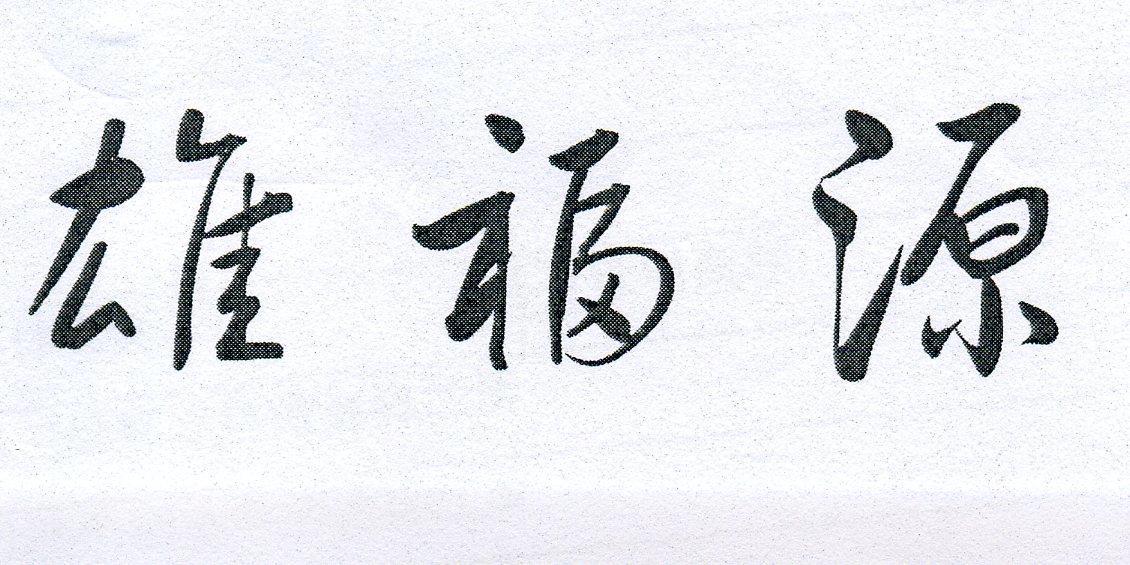 雄福源